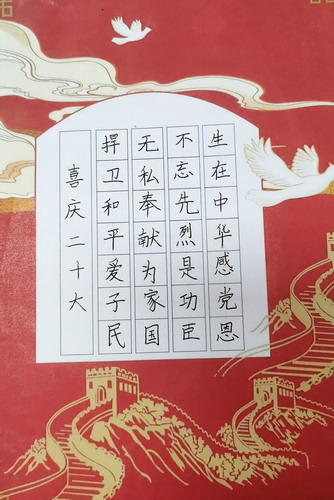 生在中华感党恩
不忘先烈是功臣
无私奉献为家国
捍卫和平爱子民
喜庆二十大